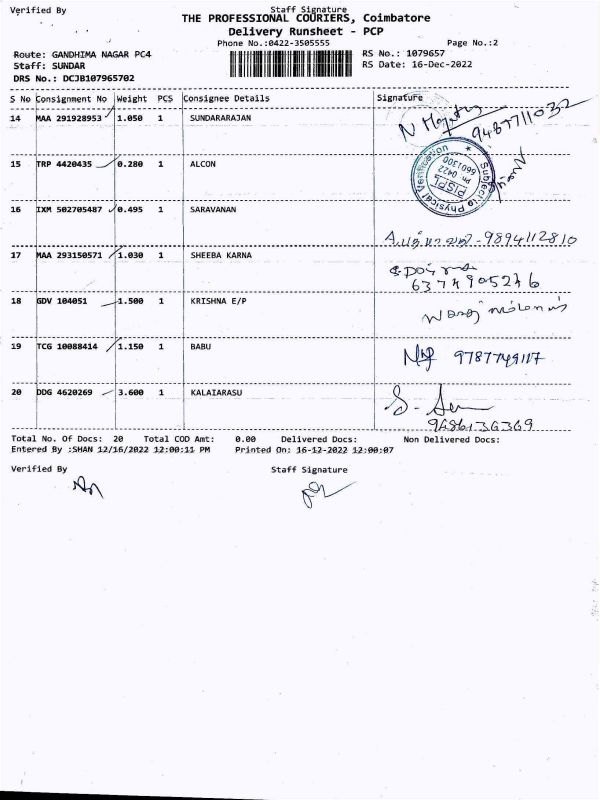 Verified By Staff Signature
THE PROFESSIONAL COURIERS, Coimbatore
Delivery Runsheet - PCP
Phone No.:0422-3505555 Page No.:2
Route: GANDHIMA NAGAR PC4 RS No.: 1079657
Staff: SUNDAR RS Date: 16-Dec-2022
DRS No.: DCJB107965702
S No Consignment No Weight PCS Consignee Details Signature
14 MAA 291928953 1.050 1 SUNDARARAJAN
9487711032
15 TRP 4420435 0.280 1 ALCON
Subject to Physical Verification
PISPL
Ph 0422
6601300
16 IXM 502705487 0.495 1 SARAVANAN
9894112810
17 MAA 293150571 1.030 1 SHEEBA KARNA
6374905276
18 GDV 104051 1.500 1 KRISHNA E/P
19 TCG 10088414 1.150 1 BABU
9787749117
20 DDG 4620269 3.600 1 KALAIARASU
9486136369
Total No. Of Docs: 20 Total COD Amt: 0.00 Delivered Docs: Non Delivered Docs:
Entered By :SHAN 12/16/2022 12:00:11 PM Printed On: 16-12-2022 12:00:07
Verified By Staff Signature